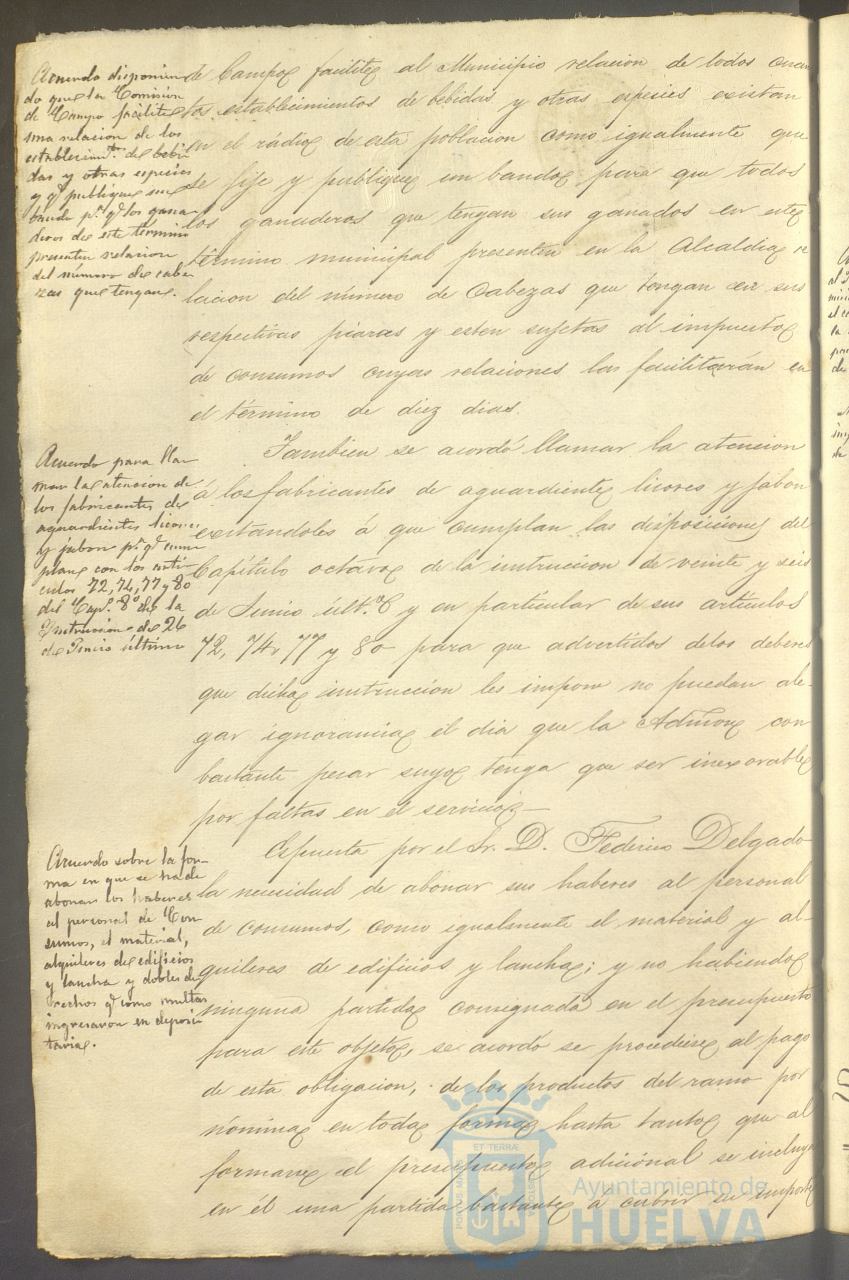 Acuerdo disponien-
do que la Comision
de Campo facilite
una relacion de los
establecimtos. de bebi-
das y otras especies
y q. publique un
bando pa. q. los gana-
deros de este término
presenten relacion
del número de cabe-
zas que tengan.
de Campo facilite al Municipio relacion de todos cuan
tos establecimientos de bebidas y otras especies existan
en el rádio de esta poblacion como igualmente que
se fije y publique un bando para que todos
los ganaderos que tengan sus ganados en este
término municipal presenten en la Alcaldia re
lacion del número de Cabezas que tengan en sus
respectivas piaras y esten sujetas al impuesto
de consumos cuyas relaciones las facilitarán en
el término de diez dias.
Acuerdo para lla-
mar la atencion de
los fabricantes de
aguardientes licores
y jabon pa. q. cum-
plan con los artí-
culos 72, 74, 77 y 80
del Cap. 8º de la
Instrucion de 26
de Junio último
Tambien se acordó llamar la atencion
á los fabricantes de aguardiente, licores y jabon
escitándoles á que cumplan las disposiciones del
Capítulo octavo de la instruccion de veinte y seis
de Junio últ.º y en particular de sus artículos
72, 74, 77 y 80 para que advertidos delos deberes
que dicha instruccion les impone no puedan ale-
gar ignorancia el dia que la Admon con
bastante pesar suyo tenga que ser inexorable
por faltas en el servicio.—
Acuerdo sobre la for-
ma en que se ha de
abonar los haberes
al personal de Con-
sumos, el material,
alquileres de edificios
y lancha y dobles de-
rechos q. como multas
ingresaron en deposi-
taria.
Espuesta por el Sr. D. Federico Delgado
la necesidad de abonar sus haberes al personal
de consumos, como igualmente el material y al-
quileres de edificios y lancha; y no habiendo
ninguna partida consegnada en el presupuesto
para este objeto, se acordó se procediese al pago
de esta obligacion, de los productos del ramo por
nómina en toda forma hasta tanto que al
formarse el presupuesto adicional se incluya
en él una partida bastante á cubrir su importe
ET TERRAE
Ayuntamiento de
HUELVA